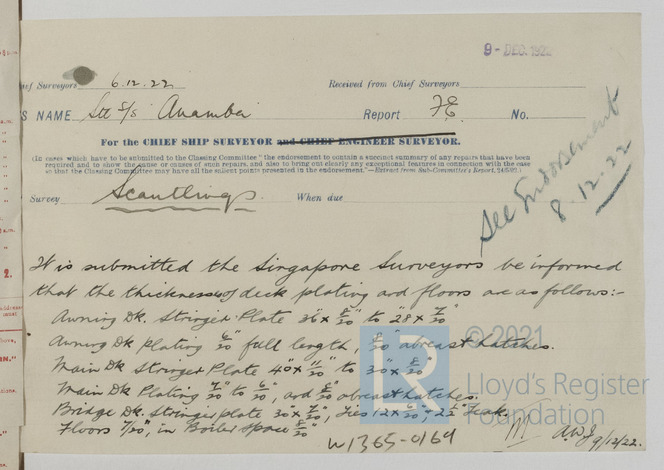 9-DEC.1922
ief Surveyors 6.12.22 Received from Chief Surveyors
S NAME See S/S Anamba Report FE No.
For the CHIEF SHIP SURVEYOR and CHIEF ENGINEER SURVEYOR.
(In cases which have to be submitted to the Classing Committee "the endorsement to contain a succinct summary of any repairs that have been
required and to show the cause or causes of such repairs, and also to bring out clearly any exceptional features in connection with the case
so that the Classing Committee may have all the salient points presented in the endorsement."—Extract from Sub-Committee's Report,
Survey Scantlings When due
See Endorsement
8.12.22
It is submitted the Singapore Surveyors be informed
that the thickness of deck plating and floors are as follows:-
Awning Dk. Stringer Plate 36" x 8/20" to 28" x 7/20"
Awning Dk plating 6/20" full length, 8/20" abreast hatches.
Main Dk Stringer Plate 40" x 11/20" to 30" x 8/20"
Main Dk Plating 7/20" to 6/20", and 8/20" abreast hatches.
Bridge Dk. Stringer plate 30 x 7/20", Ties 12 x
Floors 7/20", in Boiler space 8/20"
W1365-0164
A.W.J 9/12/22.
2.
© 2021
LR
Lloyd's Register
Foundation